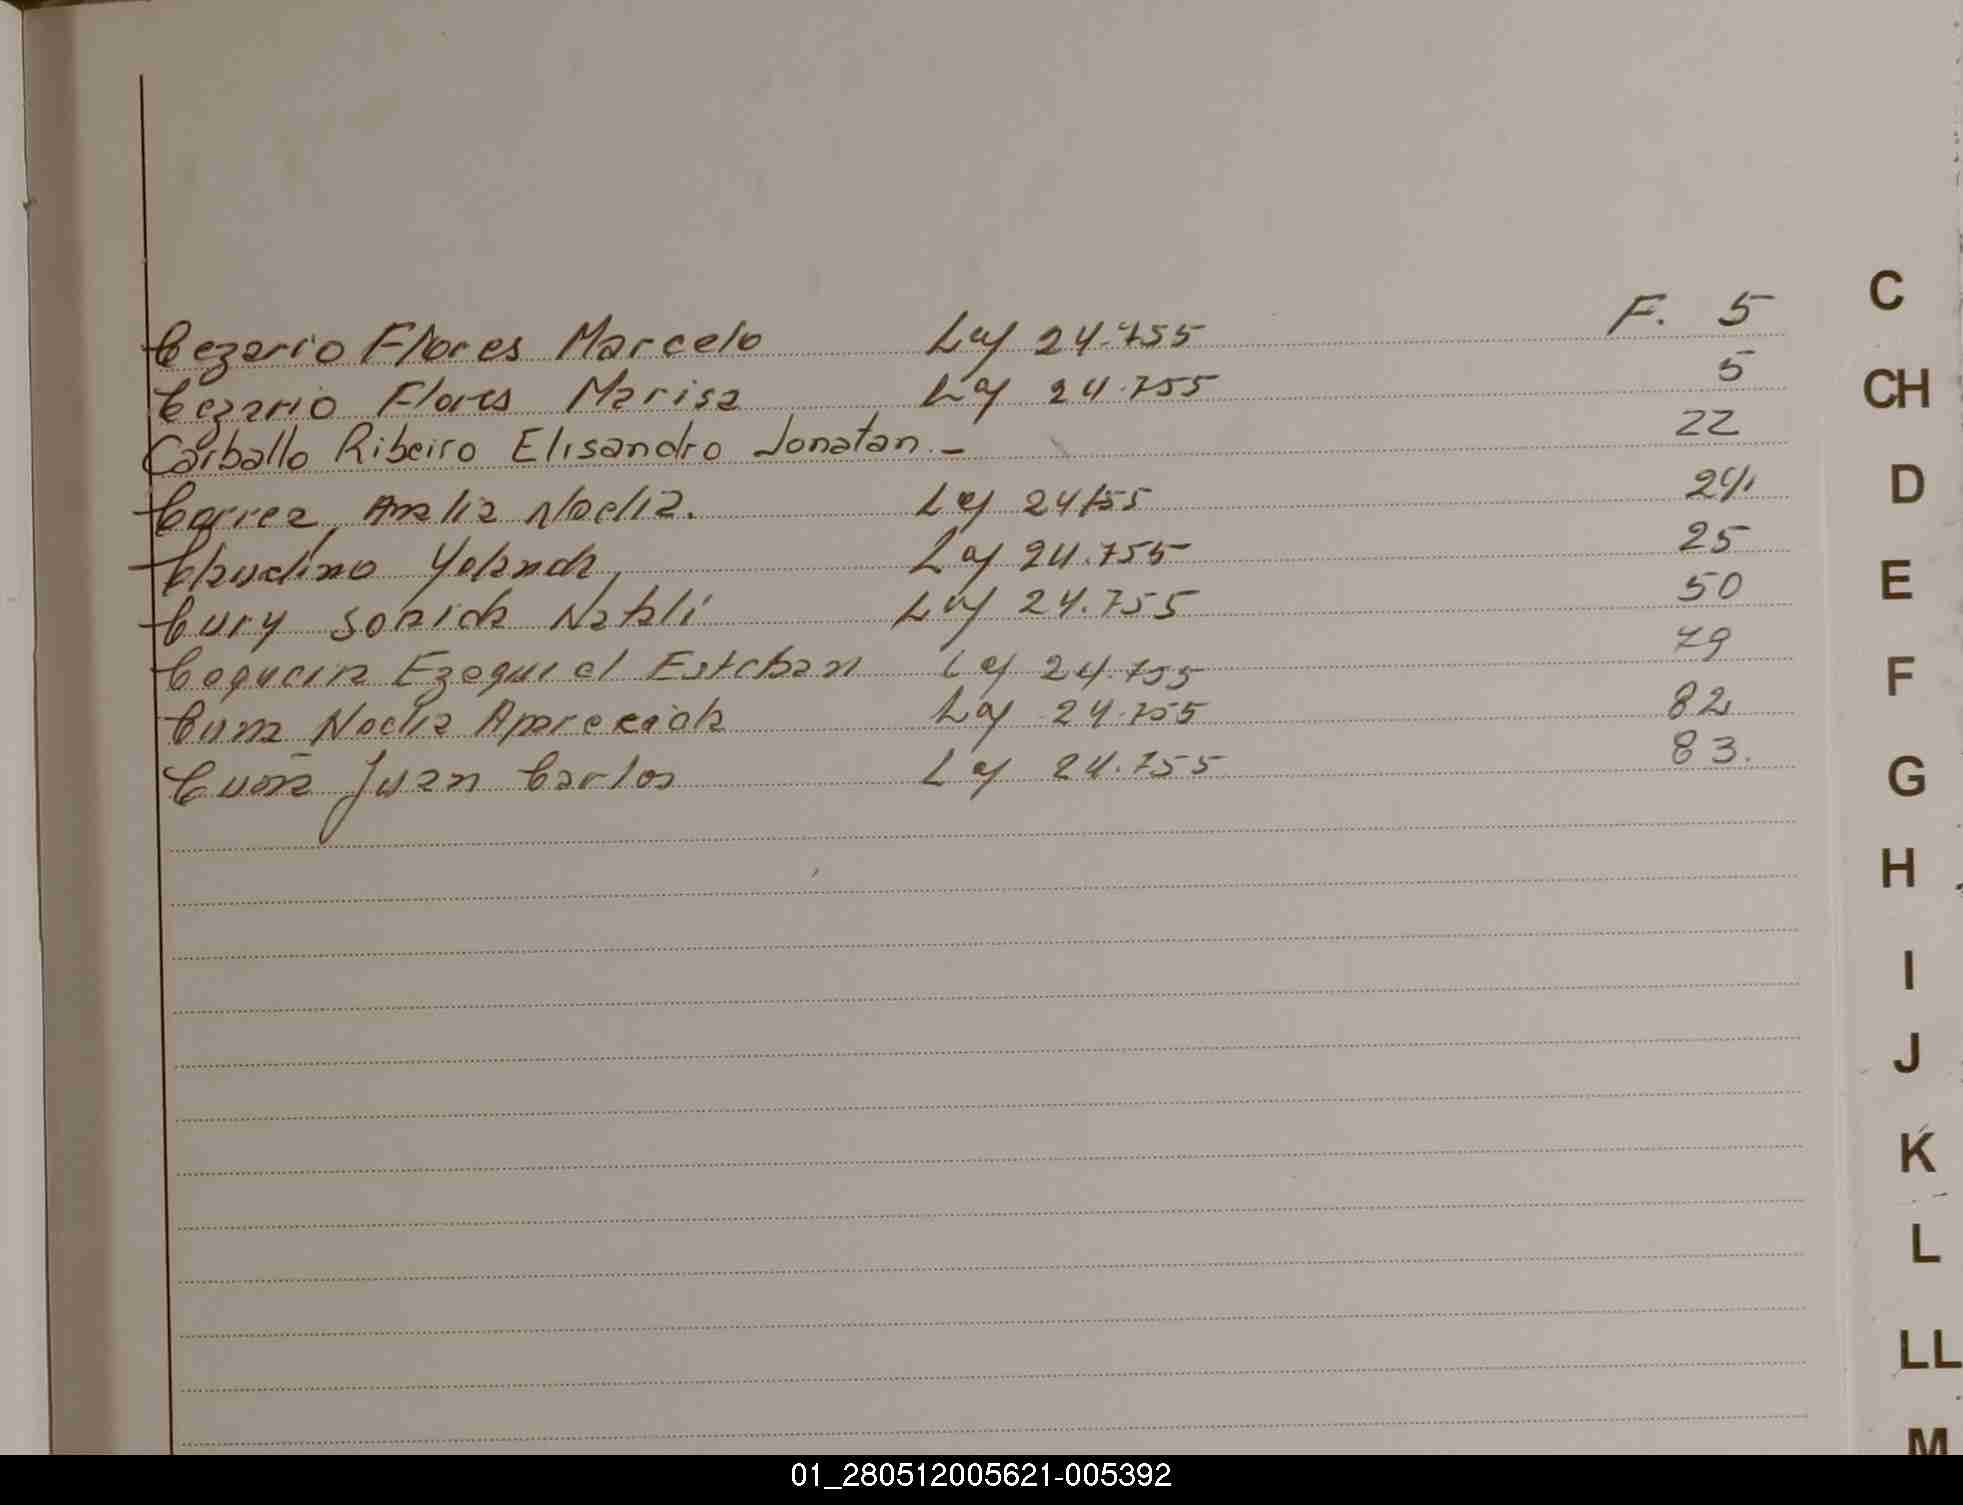 F. 5
Cezario Flores Marcelo Ley 24.755
Cezario Flores Marisa Ley 24.755 5
Carballo Ribeiro Elisandro Jonatan.- 22
Correa, Analia Noelia. Ley 24755 24
Claudino Yolanda, Ley 24.755 25
Cury Natali Ley 24.755 50
Ezequiel Esteban Ley 24.755 79
Noelia Aparecida Ley 24.755 82
Juan Carlos Ley 24.755 83.
C
CH
D
E
F
G
H
I
J
K
L
LL
M
01_280512005621-005392